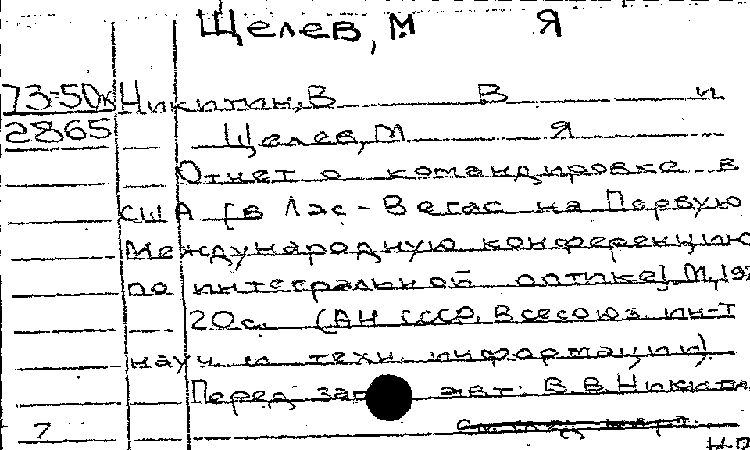 Щелев, М Я
73-50к Никитин, В В и
2865 Щелев, М Я
Отчет о командировке в
США [в Лас-Вегас на Первую
Международную конференцию
по интегральной оптике]. М, 197
20с. (АН СССР, Всесоюз. ин-т
науч и техн. информации)
Перед заг авт: В В Никити
7